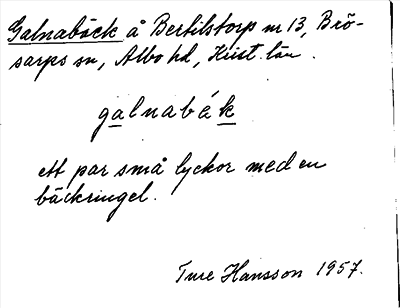 Galnabäck å Bertilstorp nr 13, Brö-
sarps sn, Albo hd, Krist. län.
galnabék
ett par små lyckor med en
bäckringel.
Ture Hansson 1957.